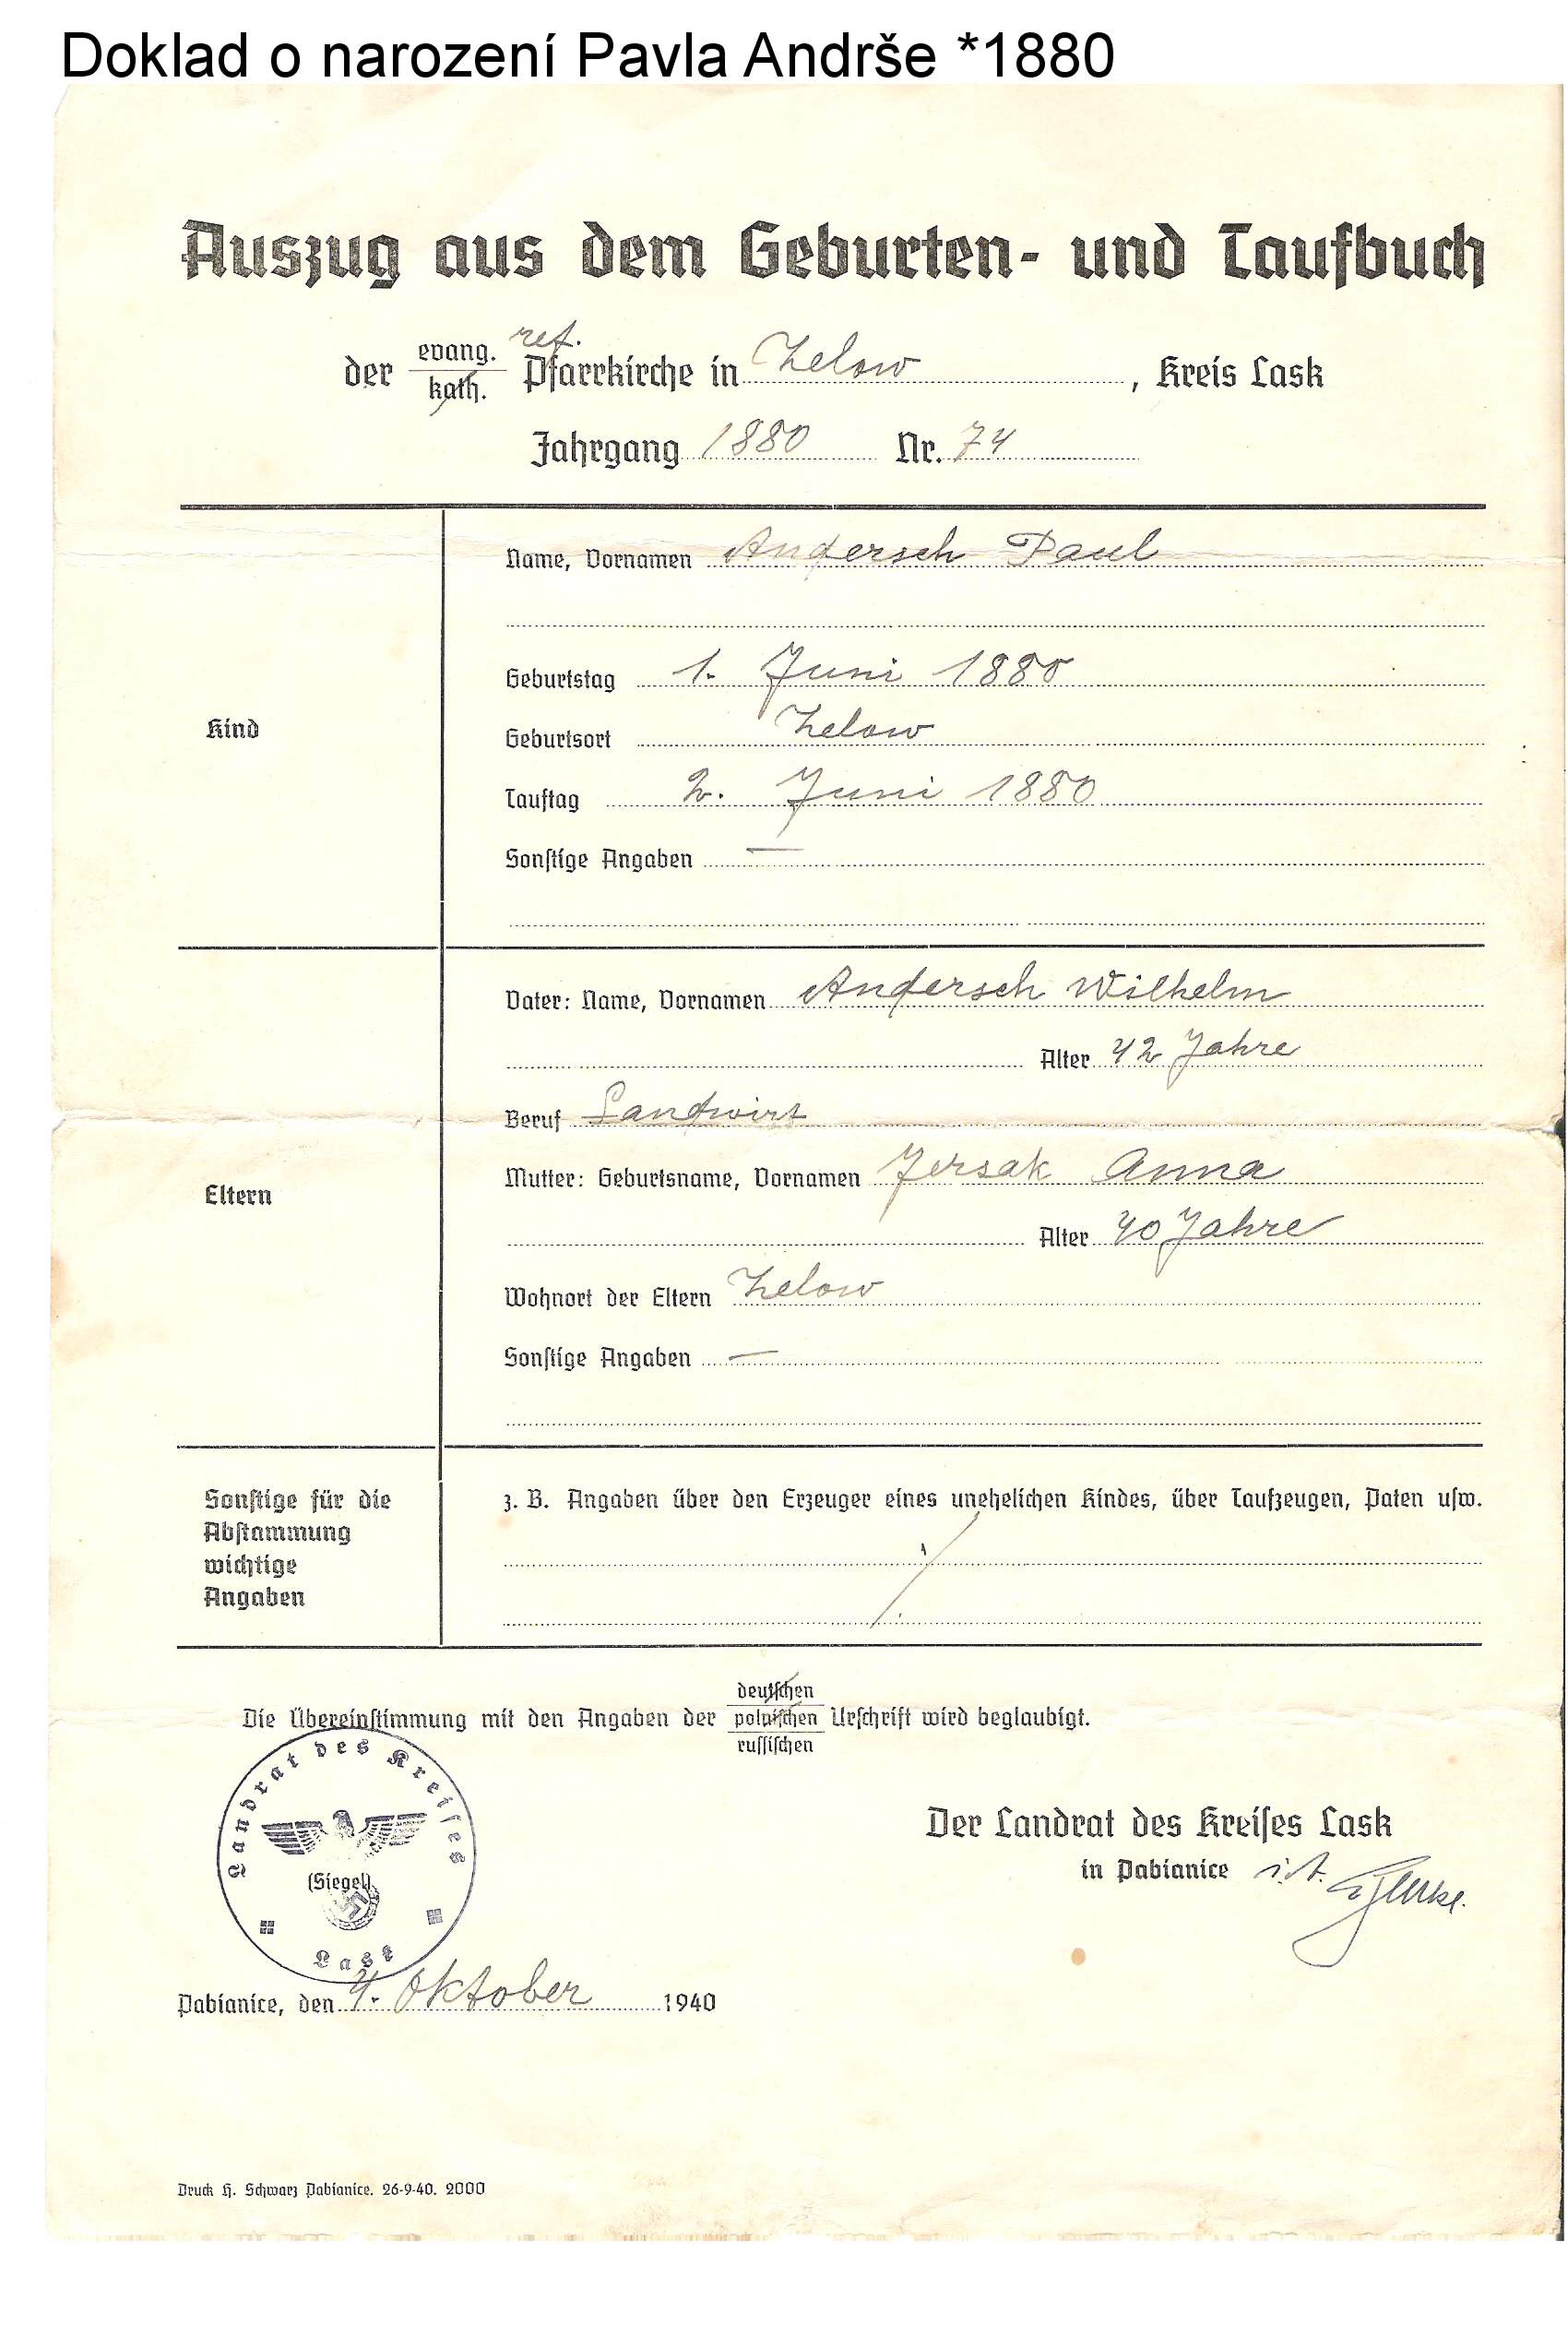 Doklad o narození Pavla Andrše *1880
Auszug aus dem Geburten- und Taufbuch
der evang. ref. Pfarrkirche in Zelow, Kreis Lask
kath.
Jahrgang 1880 Nr. 74
Kind
Name, Vornamen Andersch Paul
Geburtstag 1. Juni 1880
Geburtsort Zelow
Tauftag 2. Juni 1880
Sonstige Angaben —
Eltern
Vater: Name, Vornamen Andersch Wilhelm
Alter 42 Jahre
Beruf Landwirt
Mutter: Geburtsname, Vornamen Jersak Anna
Alter 40 Jahre
Wohnort der Eltern Zelow
Sonstige Angaben —
Sonstige für die
Abstammung
wichtige
Angaben
z. B. Angaben über den Erzeuger eines unehelichen Kindes, über Taufzeugen, Paten usw.
deutschen
Die Übereinstimmung mit den Angaben der polnischen Urschrift wird beglaubigt.
russischen
Landrat des Kreises
(Siegel)
Lask
Der Landrat des Kreises Lask
in Pabianice i.A.
Pabianice, den 4. Oktober 1940
Druck H. Schwarz Pabianice. 26-9-40. 2000